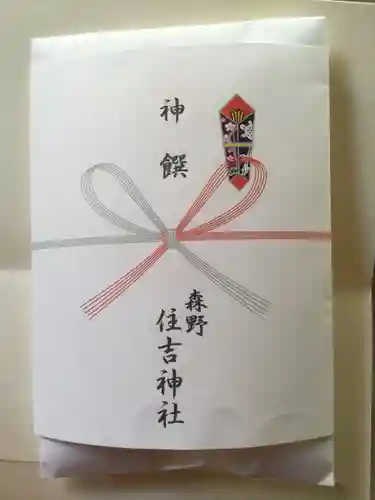 神饌
森野
住吉神社